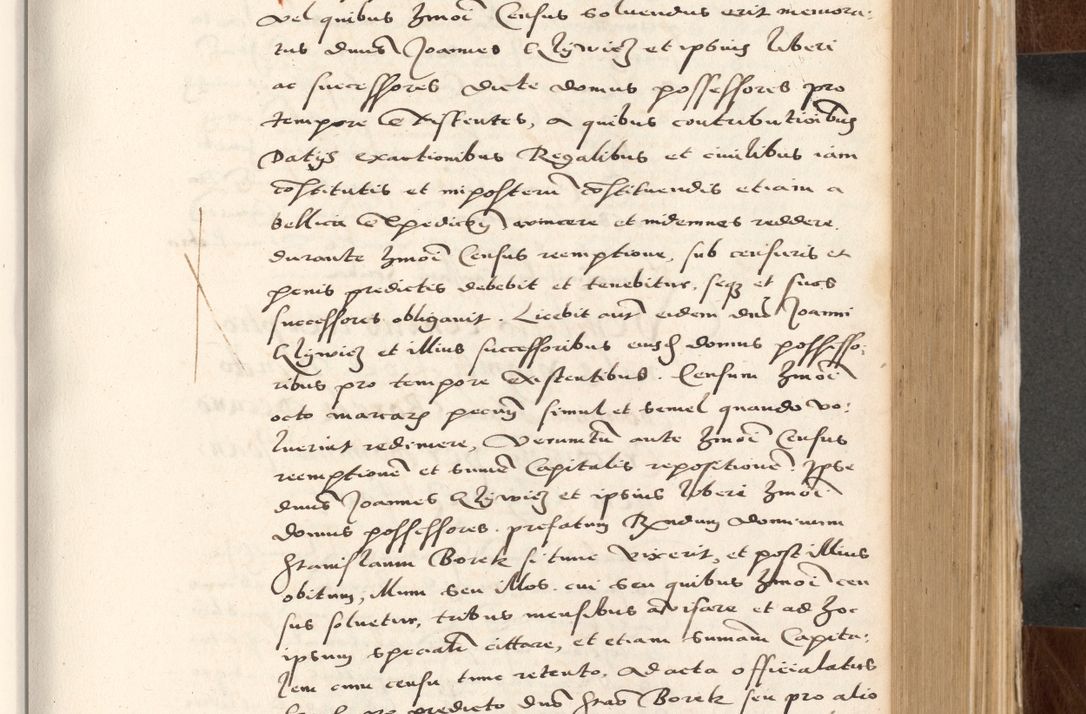 vel quibus hmoi census solvendus erit memora:
tus dnus Joannes et ipsius liberi
ac successores dicte domus possessores pro
tempore existentes, a quibus contributioibus
Datijs exactionibus Regalibus et civilibus iam
costitutis et inposterum costituendis etiam a
bellica expedicone evincere et indemnes reddere.
durante hmoi Census reemptione, sub censuris et
penis predictis debebit et tenebitur, seqz et suos
successores obligavit. Licebit aut eidem dno Joanni
et illius successoribus eiusd domus possesso:
ribus pro tempore existentibus. Censum hmoi
octo marcarz pecuniz simul et semel quando vo:
luerint redimere, Veruntn ante hmoi Census
reemptione et sume Capitalis repositione. Ipse
dnus Joannes et ipsius liberi hmoi
domus possessores. prefatum Rndum dominum
Stanislaum Borek si tunc vixerit, et post illius
obitum, illum seu illos. cui seu quibus hmoi cen
sus solvetur, tribus mensibus avisare et ad hoc
ipsum specialr cittare, et etiam sumam Capita:
lem cum censu tunc retento, ad acta officialatus
predicto dno Stao Borek seu pro alio